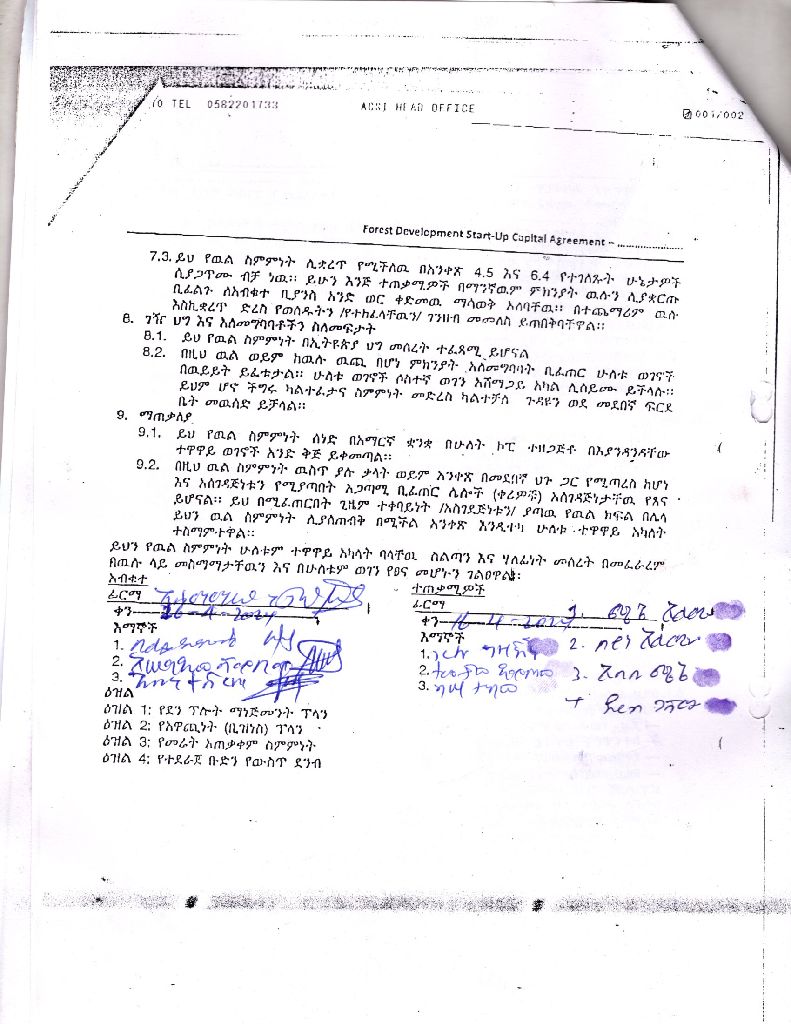 TO TEL 0582201733 ACSI HEAD OFFICE 001/002
Forest Development Start-Up Capital Agreement – ......................
7.3. ይህ የዉል ስምምነት ሊቋረጥ የሚችለዉ በአንቀጽ 4.5 እና 6.4 የተገለጹት ሁኔታዎች
ሲያጋጥሙ ብቻ ነዉ። ይሁን እንጅ ተጠቃሚዎች በማንኛዉም ምክንያት ዉሉን ሲያቋርጡ
ቢፈልጉ ለአብቁተ ቢያንስ አንድ ወር ቀድመዉ ማሳወቅ አለባቸዉ። በተጨማሪም ዉሉ
እስኪቋረጥ ድረስ የወሰዱትን /የተከፈላቸዉን/ ገንዘብ መመለስ ይጠበቅባቸዋል።
8. ገዥ ህግ እና አለመግባባቶችን ስለመፍታት
8.1. ይህ የዉል ስምምነት በኢትዮጵያ ህግ መሰረት ተፈጻሚ ይሆናል
8.2. በዚህ ዉል ወይም ከዉሉ ዉጪ በሆነ ምክንያት አለመግባባት ቢፈጠር ሁለቱ ወገኖች
በዉይይት ይፈቱታል። ሁለቱ ወገኖች ሶስተኛ ወገን አሸማጋይ አካል ሊሰይሙ ይችላሉ።
ይህም ሆኖ ችግሩ ካልተፈታና ስምምነት መድረስ ካልተቻለ ጉዳዩን ወደ መደበኛ ፍርድ
ቤት መዉሰድ ይቻላል።
9. ማጠቃለያ
9.1. ይህ የዉል ስምምነት ሰነድ በአማርኛ ቋንቋ በሁለት ኮፒ ተዘጋጅቶ በእያንዳንዳቸው
ተዋዋይ ወገኖች አንድ ቅጅ ይቀመጣል።
9.2. በዚህ ዉል ስምምነት ዉስጥ ያሉ ቃላት ወይም አንቀጽ በመደበኛ ህጉ ጋር የሚጣረስ ከሆነ
እና አስገዳጅነቱን የሚያጣበት አጋጣሚ ቢፈጠር ሌሎች (ቀሪዎቹ) አስገዳጅነታቸዉ የጸና
ይሆናል። ይህ በሚፈጠርበት ጊዜም ተቀባይነት /አስገደጅነቱን/ ያጣዉ የዉል ክፍል በሌላ
ይህን ዉል ስምምነት ሊያስጠብቅ በሚችል አንቀጽ እንዲተካ ሁለቱ ተዋዋይ አካለት
ተስማምተዋል።
ይህን የዉል ስምምነት ሁለቱም ተዋዋይ አካላት ባላቸዉ ስልጣን እና ሃላፊነት መሰረት በመፈራረም
በዉሉ ላይ መስማማታቸዉን እና በሁለቱም ወገን የፀና መሆኑን ገልፀዋል።
አብቁተ
ፊርማ
ቀን 26-4-2024
እማኞች
1.
2.
3.
ተጠቃሚዎች
ፊርማ 1.
ቀን 16-4-2024
እማኞች 2.
1.
2. 3.
3.
ዕዝል
ዕዝል 1: የደን ፕሎት ማነጅመንት ፕላን
ዕዝል 2: የአዋጪነት (ቢዝነስ) ፕላን
ዕዝል 3: የመሬት አጠቃቀም ስምምነት
ዕዝል 4: የተደራጀ ቡድን የውስጥ ደንብ